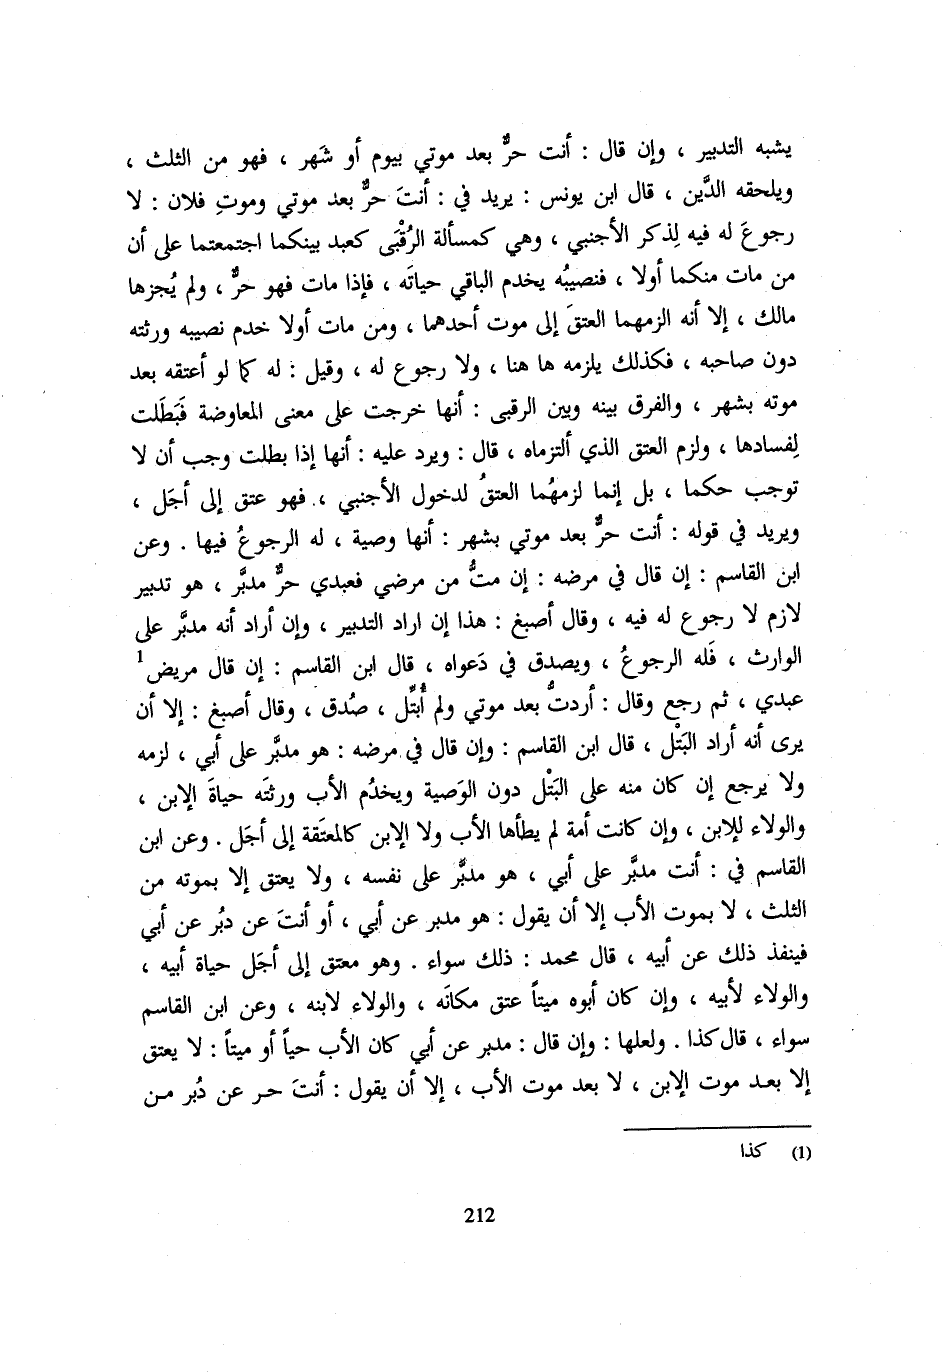 يشبه التدبير ، وإن قال : أنت حرٌّ بعد موتي بيوم أو شَهر ، فهو من الثلث ،
ويلحقه الدَّين ، قال ابن يونس : يريد في : أنتَ حرٌّ بعد موتي وموتِ فلان : لا
رجوعَ له فيه لِذكر الأجنبي ، وهي كمسألة الرُقْبَى كعبد بينكما اجتمعتما على أن
من مات منكما أولا ، فنصيبُه يخدم الباقي حياتَه ، فإذا مات فهو حرٌّ ، ولم يُجزها
مالك ، إلا أنه الزمهما العتقَ إلى موت أحدهما ، ومن مات أولا خدم نصيبه ورثته
دون صاحبه ، فكذلك يلزمه ها هنا ، ولا رجوع له ، وقيل : له كما لو أعتقه بعد
موته بشهر ، والفرق بينه وبين الرقبى : أنها خرجت على معنى المعاوضة فَبَطَلت
لِفسادها ، ولزم العتق الذي ألتزماه ، قال : ويرد عليه : أنها إذا بطلت وجب أن لا
توجب حكما ، بل إنما لزمهُما العتقُ لدخول الأجنبي ، فهو عتق إلى أجَل ،
ويريد في قوله : أنت حرٌّ بعد موتي بشهر : أنها وصية ، له الرجوعُ فيها . وعن
ابن القاسم : إن قال في مرضه : إن متُّ من مرضي فعبدي حرٌّ مدبَّر ، هو تدبير
لازم لا رجوع له فيه ، وقال أصبغ : هذا إن اراد التدبير ، وإن أراد أنه مدبَّر على
الوارث ، فَله الرجوعُ ، ويصدق في دَعواه ، قال ابن القاسم : إن قال مريض1
عبدي ، ثم رجع وقال : أردتُّ بعد موتي ولم أُبَتِّل ، صُدق ، وقال أصبغ : إلا أن
يرى أنه أراد البَتْل ، قال ابن القاسم : وإن قال في مرضه : هو مدبَّر على أبي ، لزمه
ولا يرجع إن كان منه على البَتْل دون الوَصية ويخدُم الأب ورثتَه حياةَ الإبن ،
والولاء للإبن ، وإن كانت أمة لم يطأها الأب ولا الإبن كالمعتَقة إلى أجَل . وعن ابن
القاسم في : أنت مدبَّر على أبي ، هو مدبَّر على نفسه ، ولا يعتق إلا بموته من
الثلث ، لا بموت الأب إلا أن يقول : هو مدبر عن أبي ، أو أنتَ عن دبُر عن أبي
فينفذ ذلك عن أبيه ، قال محمد : ذلك سواء . وهو معتق إلى أجَل حياة أبيه ،
والولاء لأبيه ، وإن كان أبوه ميتاً عتق مكانَه ، والولاء لابنه ، وعن ابن القاسم
سواء ، قال كذا . ولعلها : وإن قال : مدبر عن أبي كان الأب حياً أو ميتاً : لا يعتق
إلا بعد موت الإبن ، لا بعد موت الأب ، إلا أن يقول : أنتَ حر عن دُبر من
(1) كذا
212